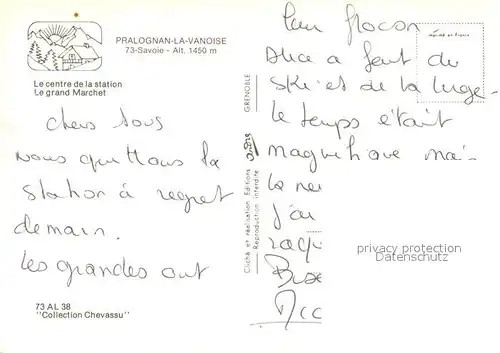 PRALOGNAN-LA-VANOISE
73-Savoie - Alt. 1450 m
Le centre de la station
Le grand Marchet
chers tous
nous quittons la
station à regret
demain.
Les grandes ont
73 AL 38
"Collection Chevassu"
GRENOBLE
Cliché et réalisation Editions André
Reproduction interdite
flocon
Alice a fait du
ski et de la luge.
le temps était
magnifique mai
la nei
j'ai
Acc
imprimé en France
privacy protection
Datenschutz